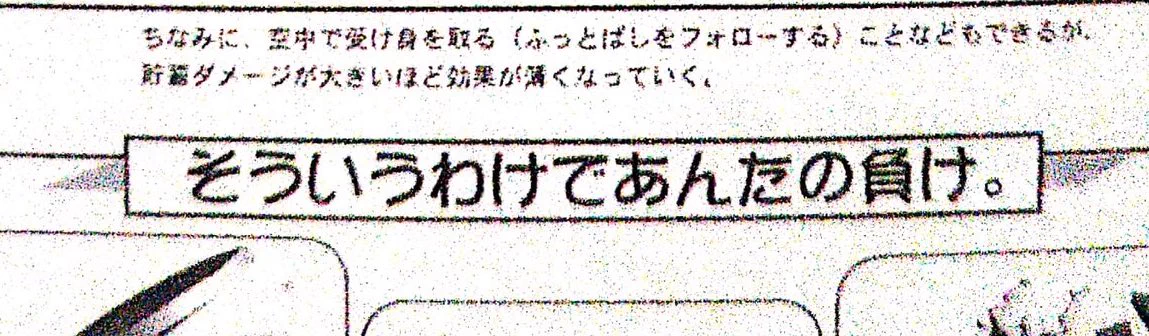 ちなみに、空中で受け身を取る（ふっとばしをフォローする）ことなどもできるが、
貯蓄ダメージが大きいほど効果が薄くなっていく。
そういうわけであんたの負け。